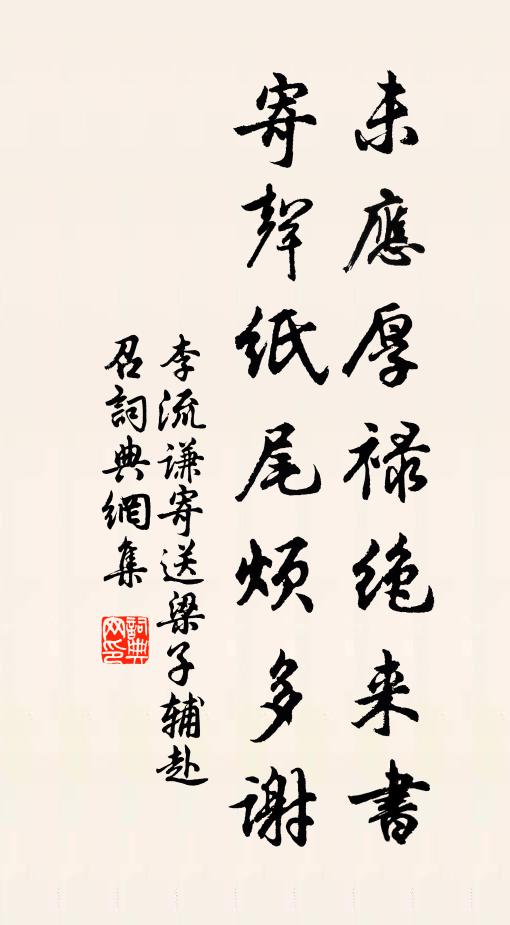 未應厚祿絶来書
寄聲紙尾煩多謝
李流谦寄送梁子辅赴
召詞典網集
詞典
网印